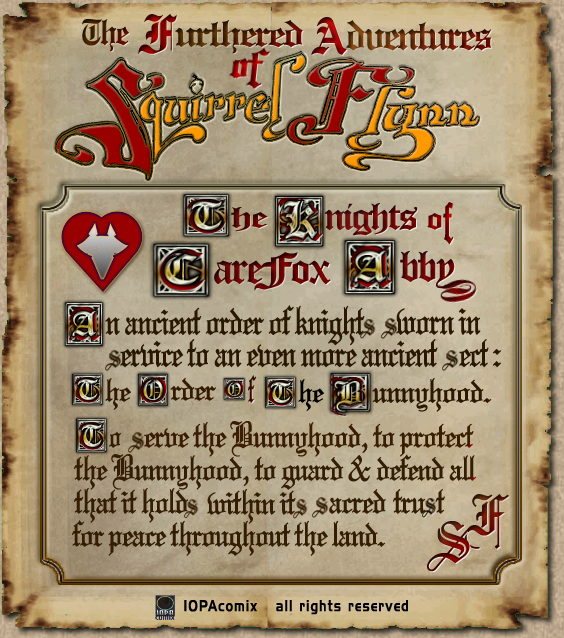 The Furthered Adventures
of
Squirrel Flynn
The Knights of
CareFox Abby
An ancient order of knights sworn in
service to an even more ancient sect:
The Order Of The Bunnyhood.
To serve the Bunnyhood, to protect
the Bunnyhood, to guard & defend all
that it holds within its sacred trust
for peace throughout the land.
SF
IOPA
comix
IOPAcomix all rights reserved